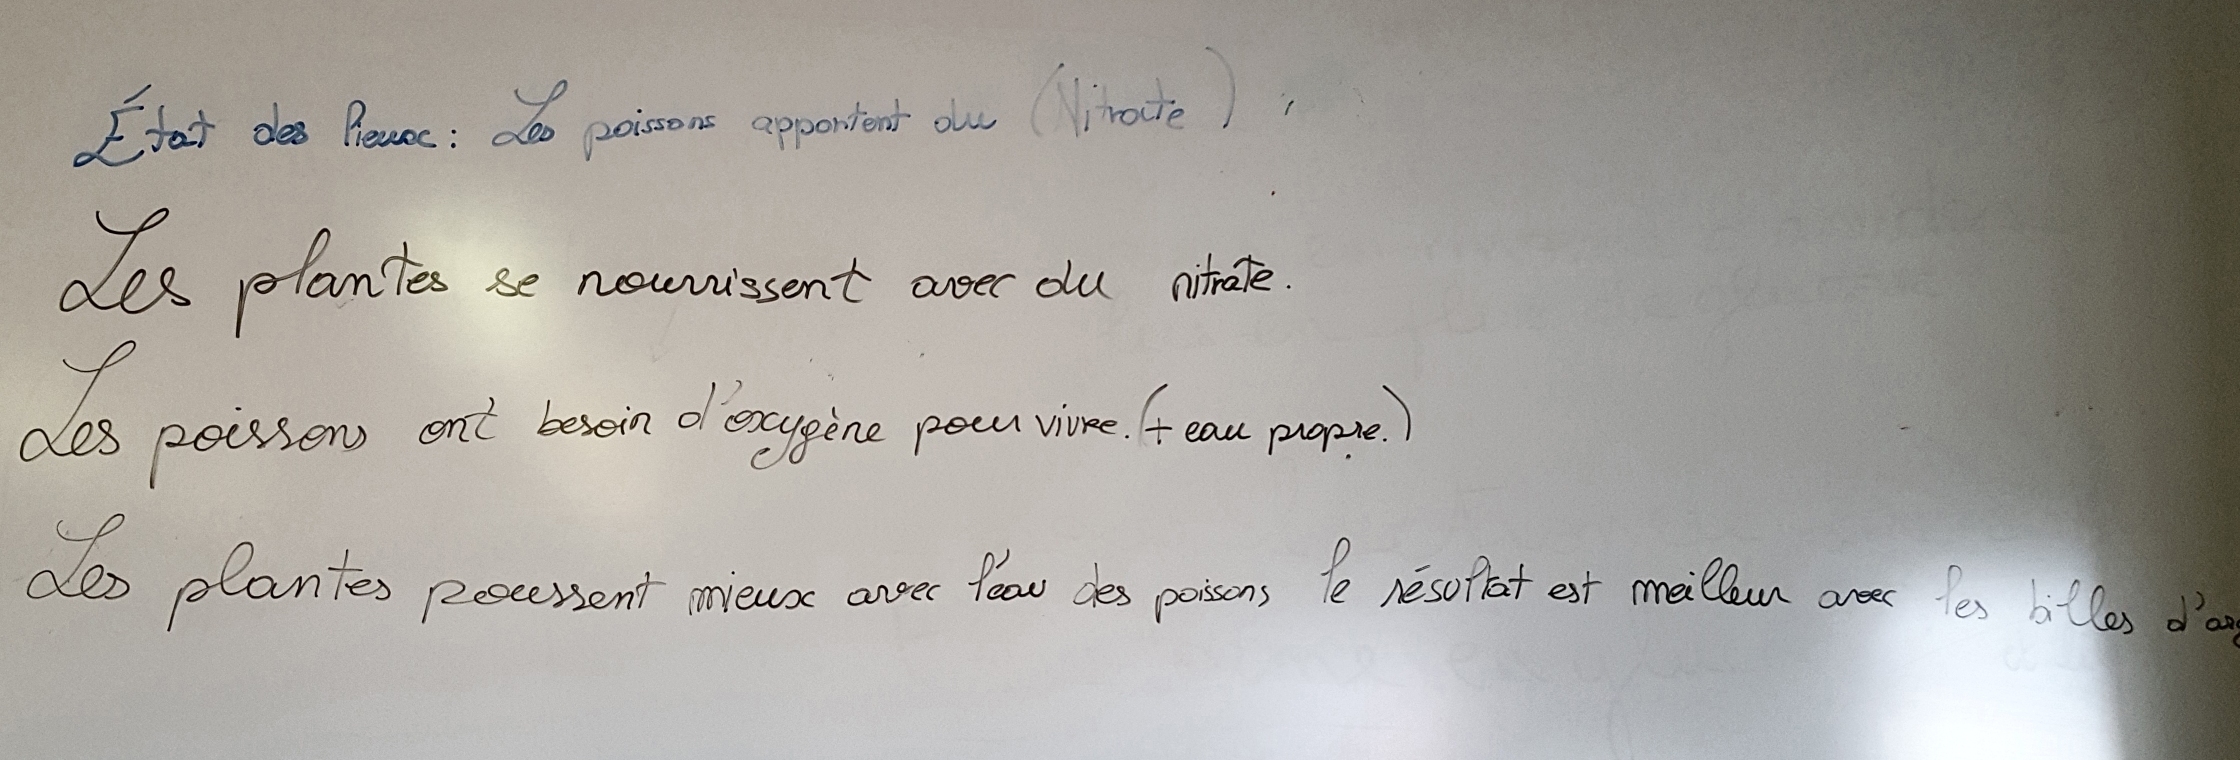 État des lieux : Les poissons apportent du (Nitrate)
Les plantes se nourrissent avec du nitrate.
Les poissons ont besoin d'oxygène pour vivre. (+ eau propre.)
Les plantes poussent mieux avec l'eau des poissons le résultat est meilleur avec les billes d'arg